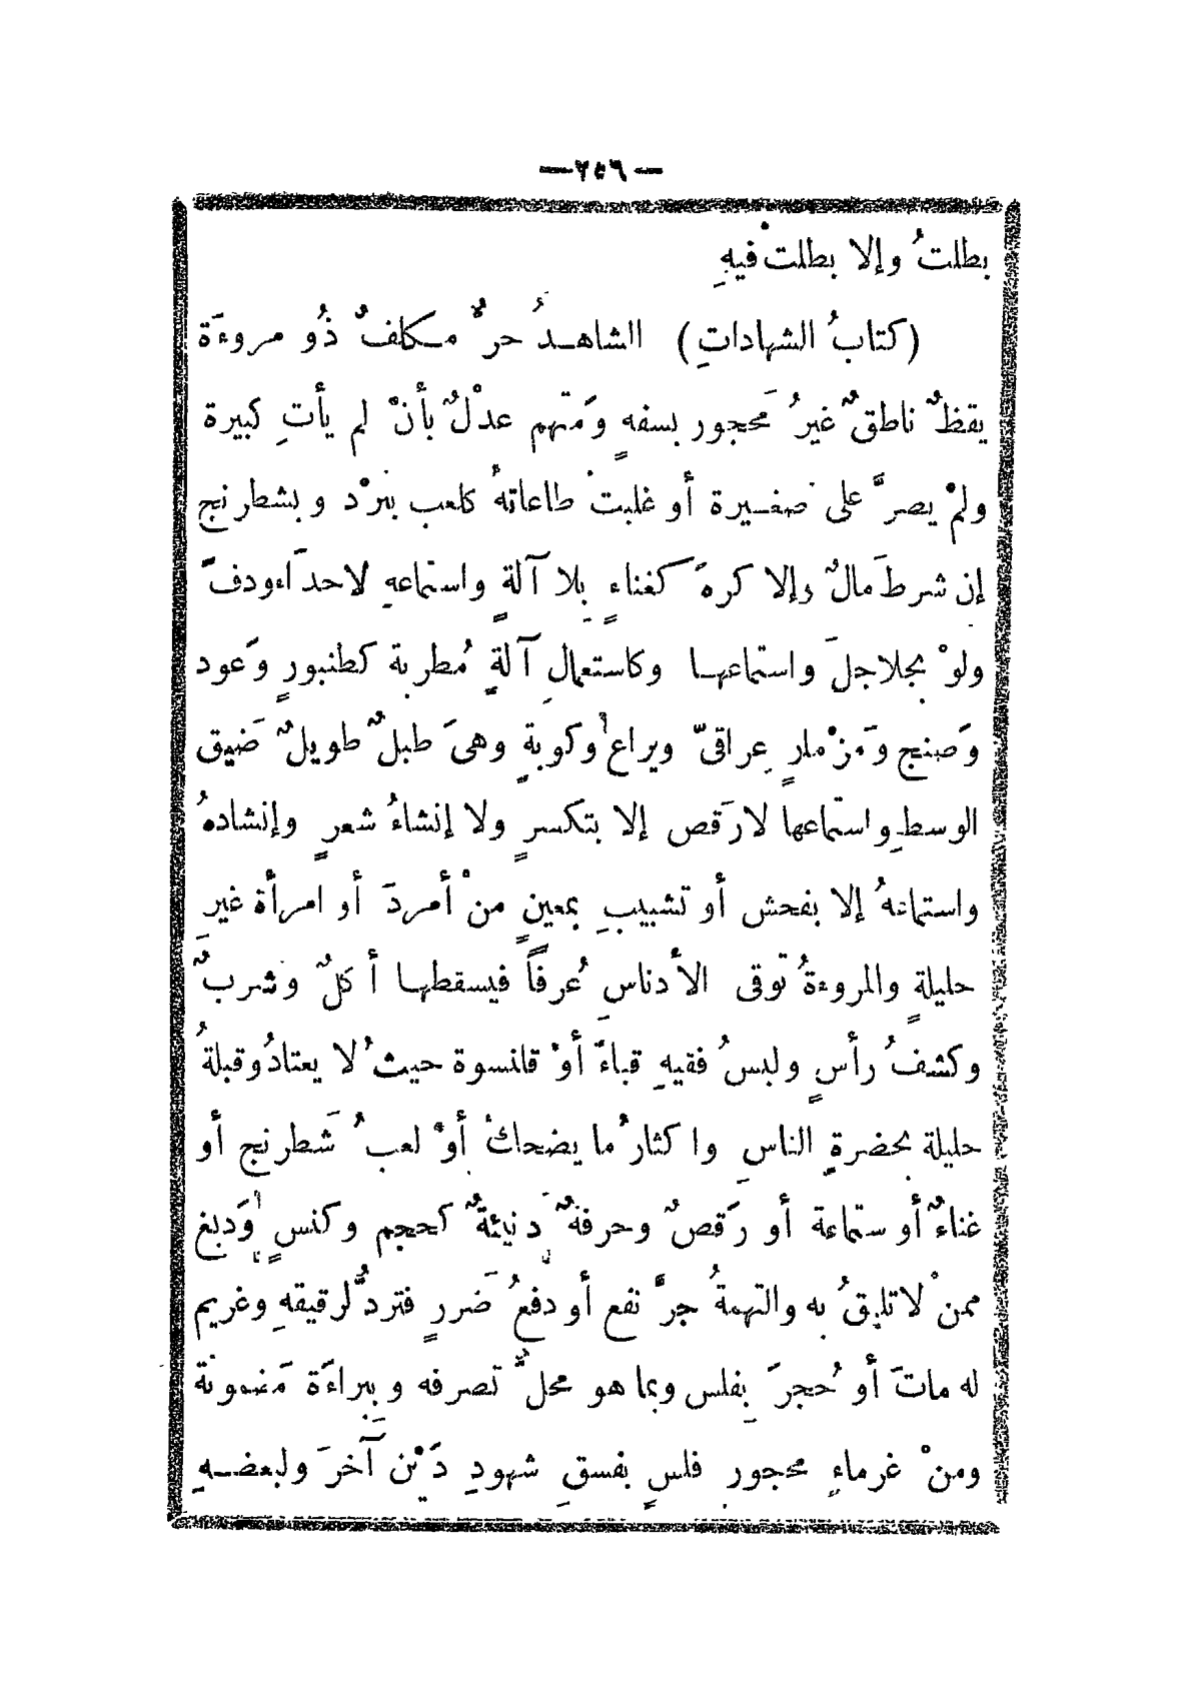 —٢٥٦—
بطلتُ وإلا بطلتْ فيهِ
(كتابُ الشهاداتِ) الشاهدُ حرٌّ مكلفٌ ذُو مروءَة
يقظٌ ناطقٌ غيرُ مَحجور بسفهٍ وَمتهم عدْلٌ بأنْ لم يأتِ كبيرة
ولمْ يصرَّ على صغيرة أو غلبتْ طاعاتهُ كلعب بنرْد وبشطرنج
إن شرطَ مالٌ وإلا كرهَ كغناءٍ بِلا آلةٍ واستماعهِ لاحدَاءودفَّ
ولوْ بجلاجلَ واستماعها وكاستعمالِ آلةٍ مُطربة كطنبورٍ وَعود
وَصنج وَمزْمارٍ عِراقىّ ويراع وكوبةٍ وهىَ طبلٌ طويلٌ ضَيق
الوسطِ واستماعها لارَقص إلا بتكسرٍ ولا إنشاءُ شعرٍ وإنشادهُ
واستماعهُ إلا بفحش أو تشبيبِ بمعينٍ منْ أمردَ أو امرأة غيرِ
حليلةٍ والمروءةُ تَوقى الأدناسِ عُرفاً فيسقطها أكلٌ وَشربٌ
وكشفُ رأسٍ ولبسُ فقيهِ قباءَ أوْ قلنسوة حيثُ لا يعتادُ وقبلةُ
حليلة بحضرةِ الناسِ واكثارُ ما يضحكُ أوْ لعبُ شَطرنج أو
غناءٌ أو ستماعة أو رَقصٌ وحرفةٌ دنيئةٌ كحجم وكنسٍ وَدبغ
ممنْ لاتليقُ به والتهمةُ جرَّ نفع أو دفعُ ضَررٍ فتردُّ لرقيقهِ وغريم
له ماتَ أو حُجرَ بِفلس وبما هو محلُّ تصرفه وبِبراءَة مَضمونة
ومنْ غرماءِ محجورِ فلسٍ بفسقِ شهودِ دَيْن آخرَ ولبعضهِ